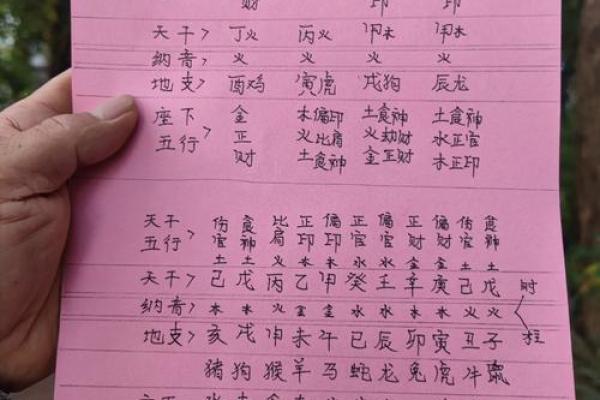 财 印 印
天干> 丁火 丙火 甲木 甲木
纳音> 火 火 火 火
地支> 酉鸡 寅虎 戌狗 辰龙
座下 金 木偏印 土食神 土食神
五行> 正 火比肩 火劫财 水正官
财 土食神 金正财 木正印
天干 伤 食 比 正 偏 正 偏 正 偏 伤 食
五行> 官 神 肩 印 印 官 官 财 财 官 神
土 土 火 木 木 水 水 金 金 土 土
天干> 己 戊 丙 乙 甲 癸 壬 辛 庚 己 戊 时
纳音> 木 木 火 金 金 水 水 木 木 火 火
地支> 亥 戌 申 未 午 巳 辰 卯 寅 丑 子 柱
猪 狗 猴 羊 马 蛇 龙 兔 虎 牛 鼠